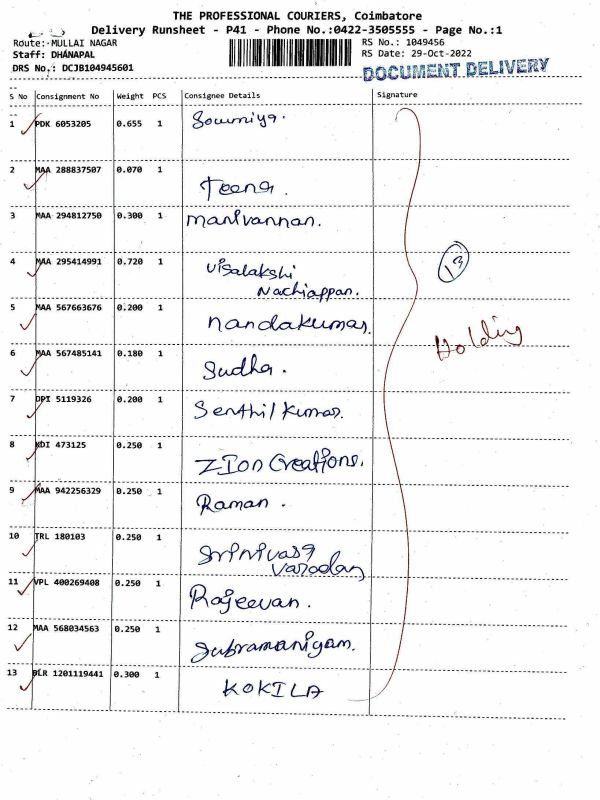 THE PROFESSIONAL COURIERS, Coimbatore
Delivery Runsheet - P41 - Phone No.:0422-3505555 - Page No.:1
Route:-MULLAI NAGAR RS No.: 1049456
Staff: DHANAPAL RS Date: 29-Oct-2022
DRS No.: DCJB104945601 DOCUMENT DELIVERY
S No Consignment No Weight PCS Consignee Details Signature
1 PDK 6053205 0.655 1 Sowmiya.
2 MAA 288837507 0.070 1 Teena.
3 MAA 294812750 0.300 1 manivannan.
4 MAA 295414991 0.720 1 Visalakshi
Nachiappan.
13
5 MAA 567663676 0.200 1 nandakumar.
Holding
6 MAA 567485141 0.180 1 Sudha.
7 DPI 5119326 0.200 1 Senthilkumar.
8 KDI 473125 0.250 1 ZIon Creations.
9 MAA 942256329 0.250 1 Raman.
10 TRL 180103 0.250 1 Srinivasa
Varadan
11 VPL 400269408 0.250 1 Rajeevan.
12 MAA 568034563 0.250 1 Subramaniyam.
13 BLR 1201119441 0.300 1 KOKILA